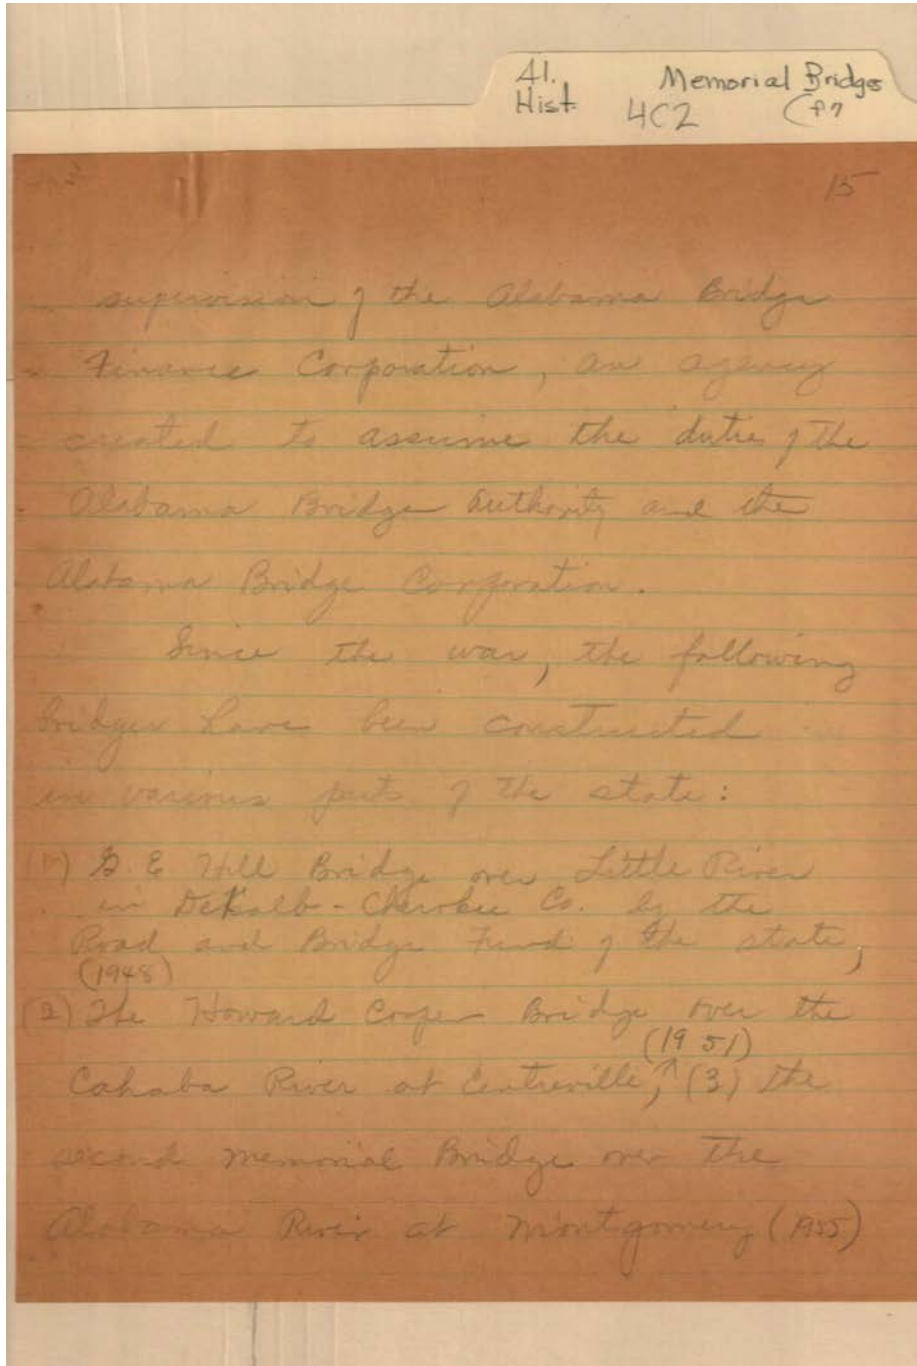 41. Memorial Bridges
Hist. 4C2 (P7
15
supervision of the Alabama Bridge
Finance Corporation, an agency
created to assume the duties of the
Alabama Bridge Authority and the
Alabama Bridge Corporation.
Since the war, the following
bridges have been constructed
in various parts of the state:
(1) G. E Hill Bridge over Little River
in DeKalb - Cherokee Co. by the
Road and Bridge Fund of the state,
(1948)
(2) The Howard Cooper Bridge over the
(1951)
Cahaba River at Centreville, ^ (3) the
second Memorial Bridge over the
Alabama River at Montgomery (1955)